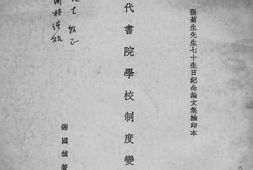 張菊生先生七十生日紀念論文集抽印本
代書院學校制度變
謝國楨著